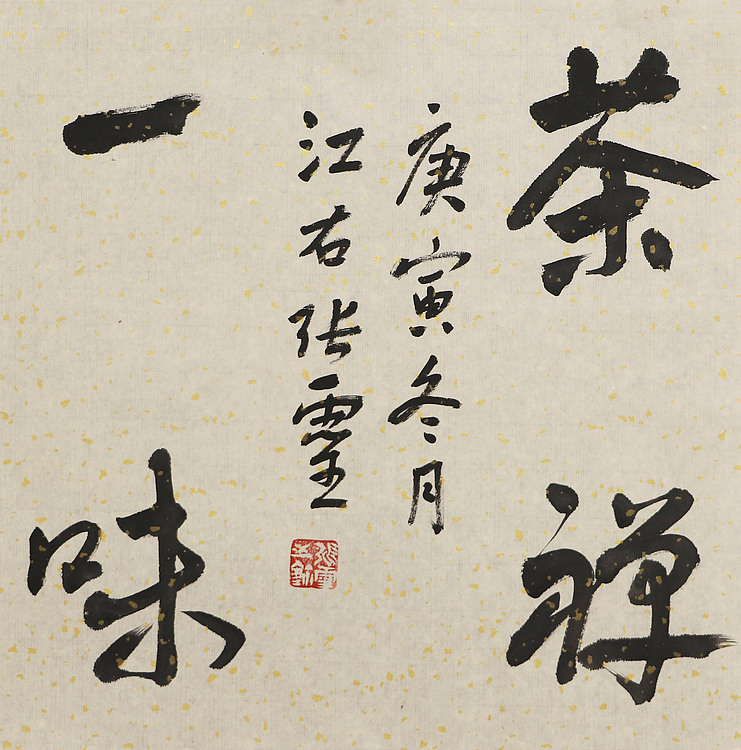 茶禅
庚寅冬月
江右张
一味